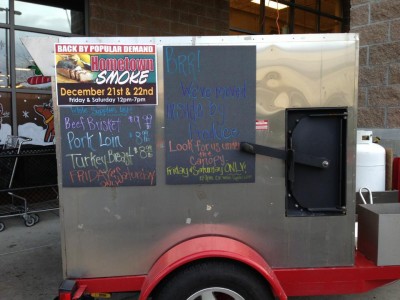 BACK BY POPULAR DEMAND
Hometown
SMOKE
December 21st & 22nd
Friday & Saturday 12pm-7pm
Beef Brisket $9.99
Pork Loin
Turkey Breast
FRIDAY & Saturday
Brrr!
We've moved
inside by
Produce
Look for us under
the
canopy
Friday & Saturday ONLY!